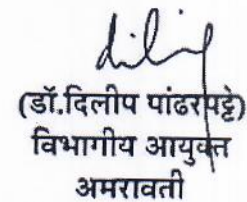 (डॉ.दिलीप पांढरपट्टे)
विभागीय आयुक्त
अमरावती